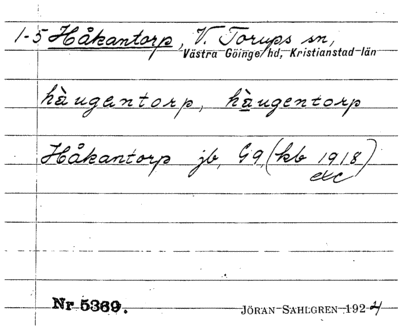 1-5 Håkantorp, V. Torups sn,
Västra Göinge hd, Kristianstad län
hàugentorp, hàugentorp
Håkantorp jb, G9, (kb 1918)
etc
Nr 5369.
JÖRAN SAHLGREN 1924